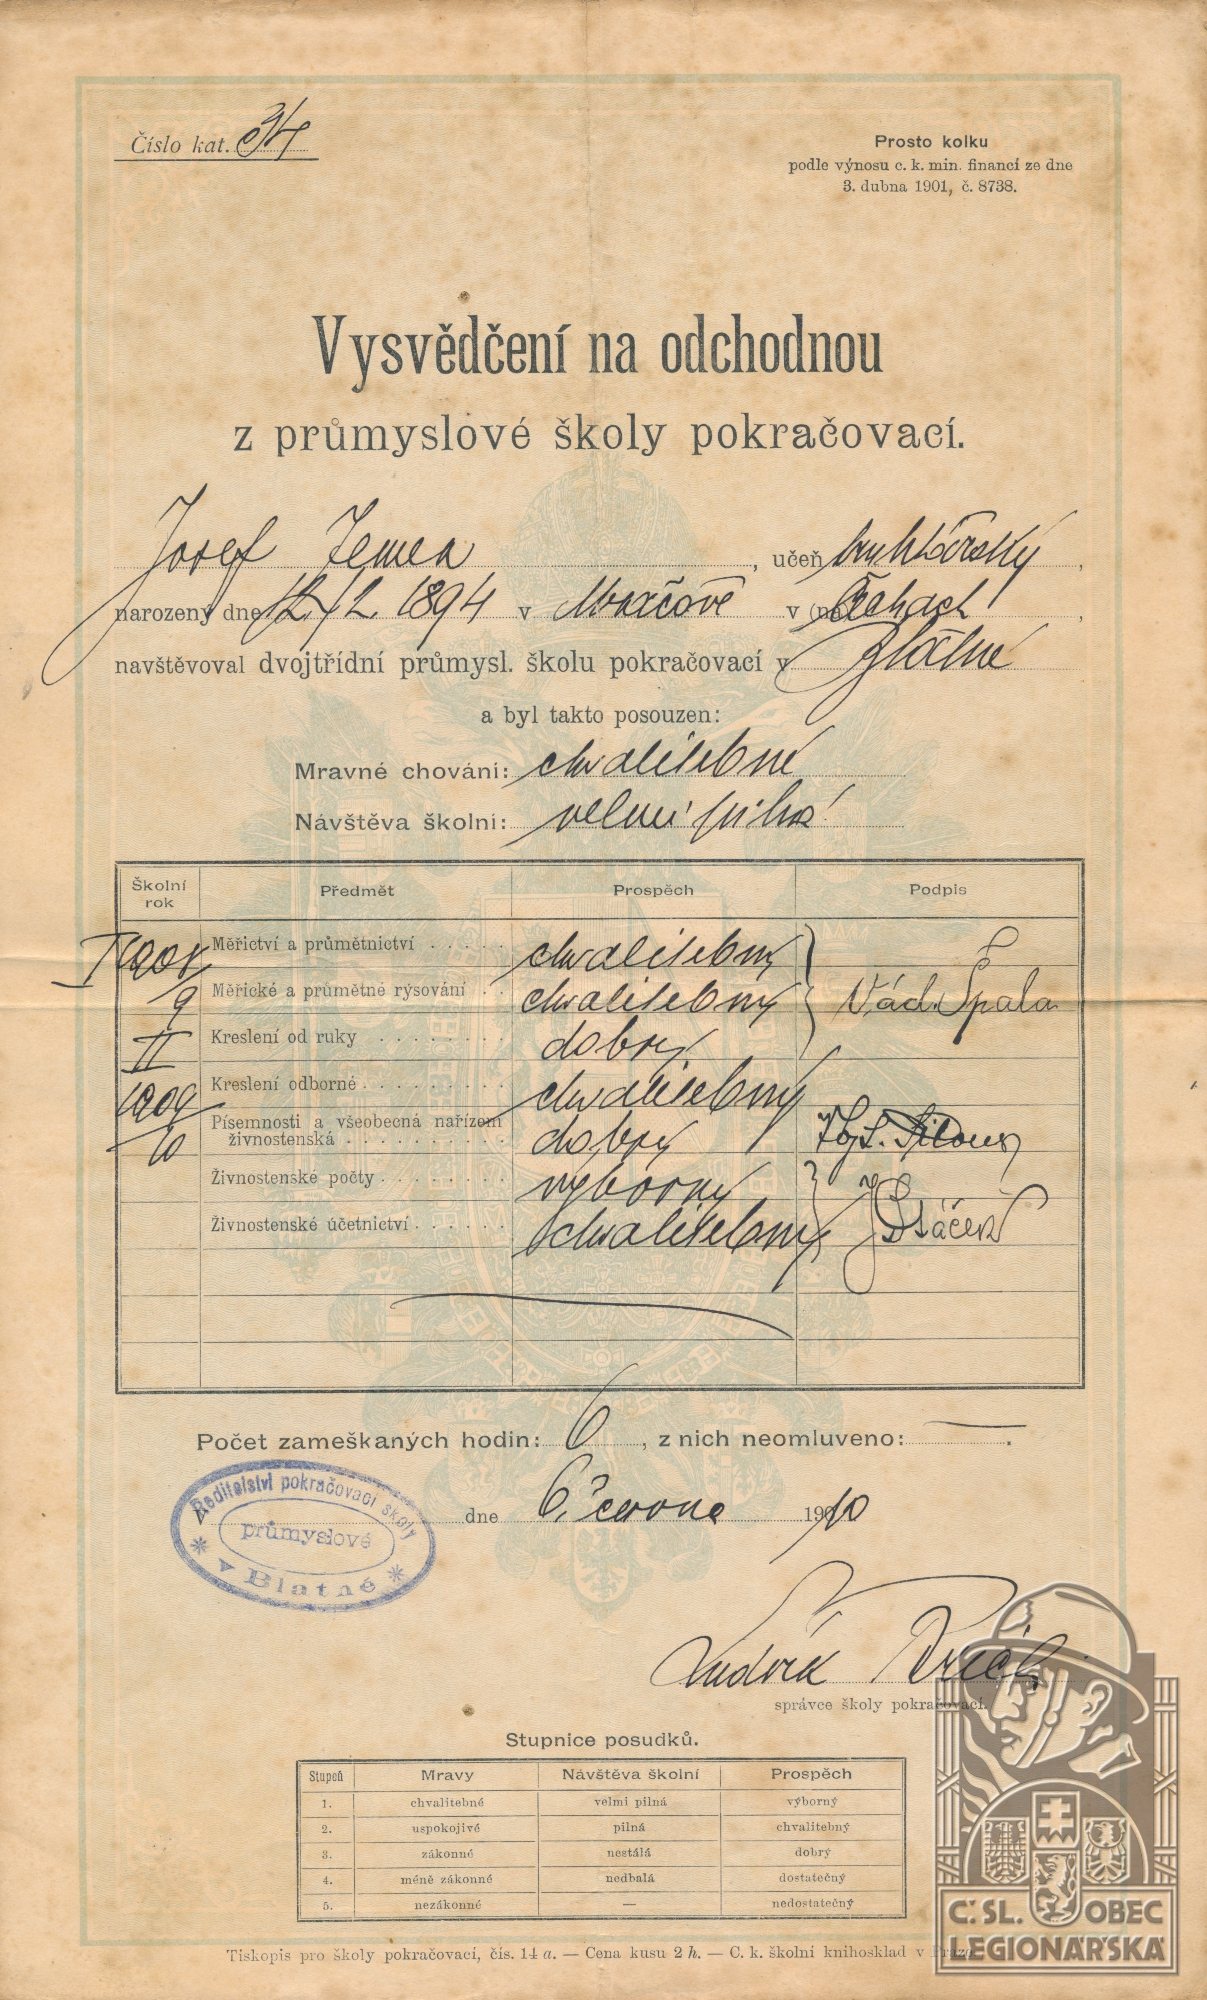 Číslo kat. 34
Prosto kolku
podle výnosu c. k. min. financí ze dne
3. dubna 1901, č. 8738.
Vysvědčení na odchodnou
z průmyslové školy pokračovací.
Josef Zeman, učeň truhlářský,
narozený dne 12/2 1894 v v (na) Čechách,
navštěvoval dvojtřídní průmysl. školu pokračovací v Blatné
a byl takto posouzen:
Mravné chování: chvalitebné
Návštěva školní: velmi pilná
Školní rok Předmět Prospěch Podpis
I 1908/9 Měřictví a průmětnictví chvalitebný
Měřické a průmětné rýsování chvalitebný Vlád. Špala
II Kreslení od ruky dobrý
1909/10 Kreslení odborné chvalitebný
Písemnosti a všeobecná nařízení
živnostenská dobrý
Živnostenské počty výborný
Živnostenské účetnictví chvalitebný
Počet zameškaných hodin: 6, z nich neomluveno: —.
dne 6. června 1910
Ředitelství pokračovací školy
průmyslové
* v Blatné *
Ludvík
správce školy pokračovací.
Stupnice posudků.
Stupeň Mravy Návštěva školní Prospěch
1. chvalitebné velmi pilná výborný
2. uspokojivé pilná chvalitebný
3. zákonné nestálá dobrý
4. méně zákonné nedbalá dostatečný
5. nezákonné — nedostatečný
Tiskopis pro školy pokračovací, čís. 14 a. — Cena kusu 2 h. — C. k. školní knihosklad v Praze.
Č. SL. OBEC
LEGIONÁŘSKÁ